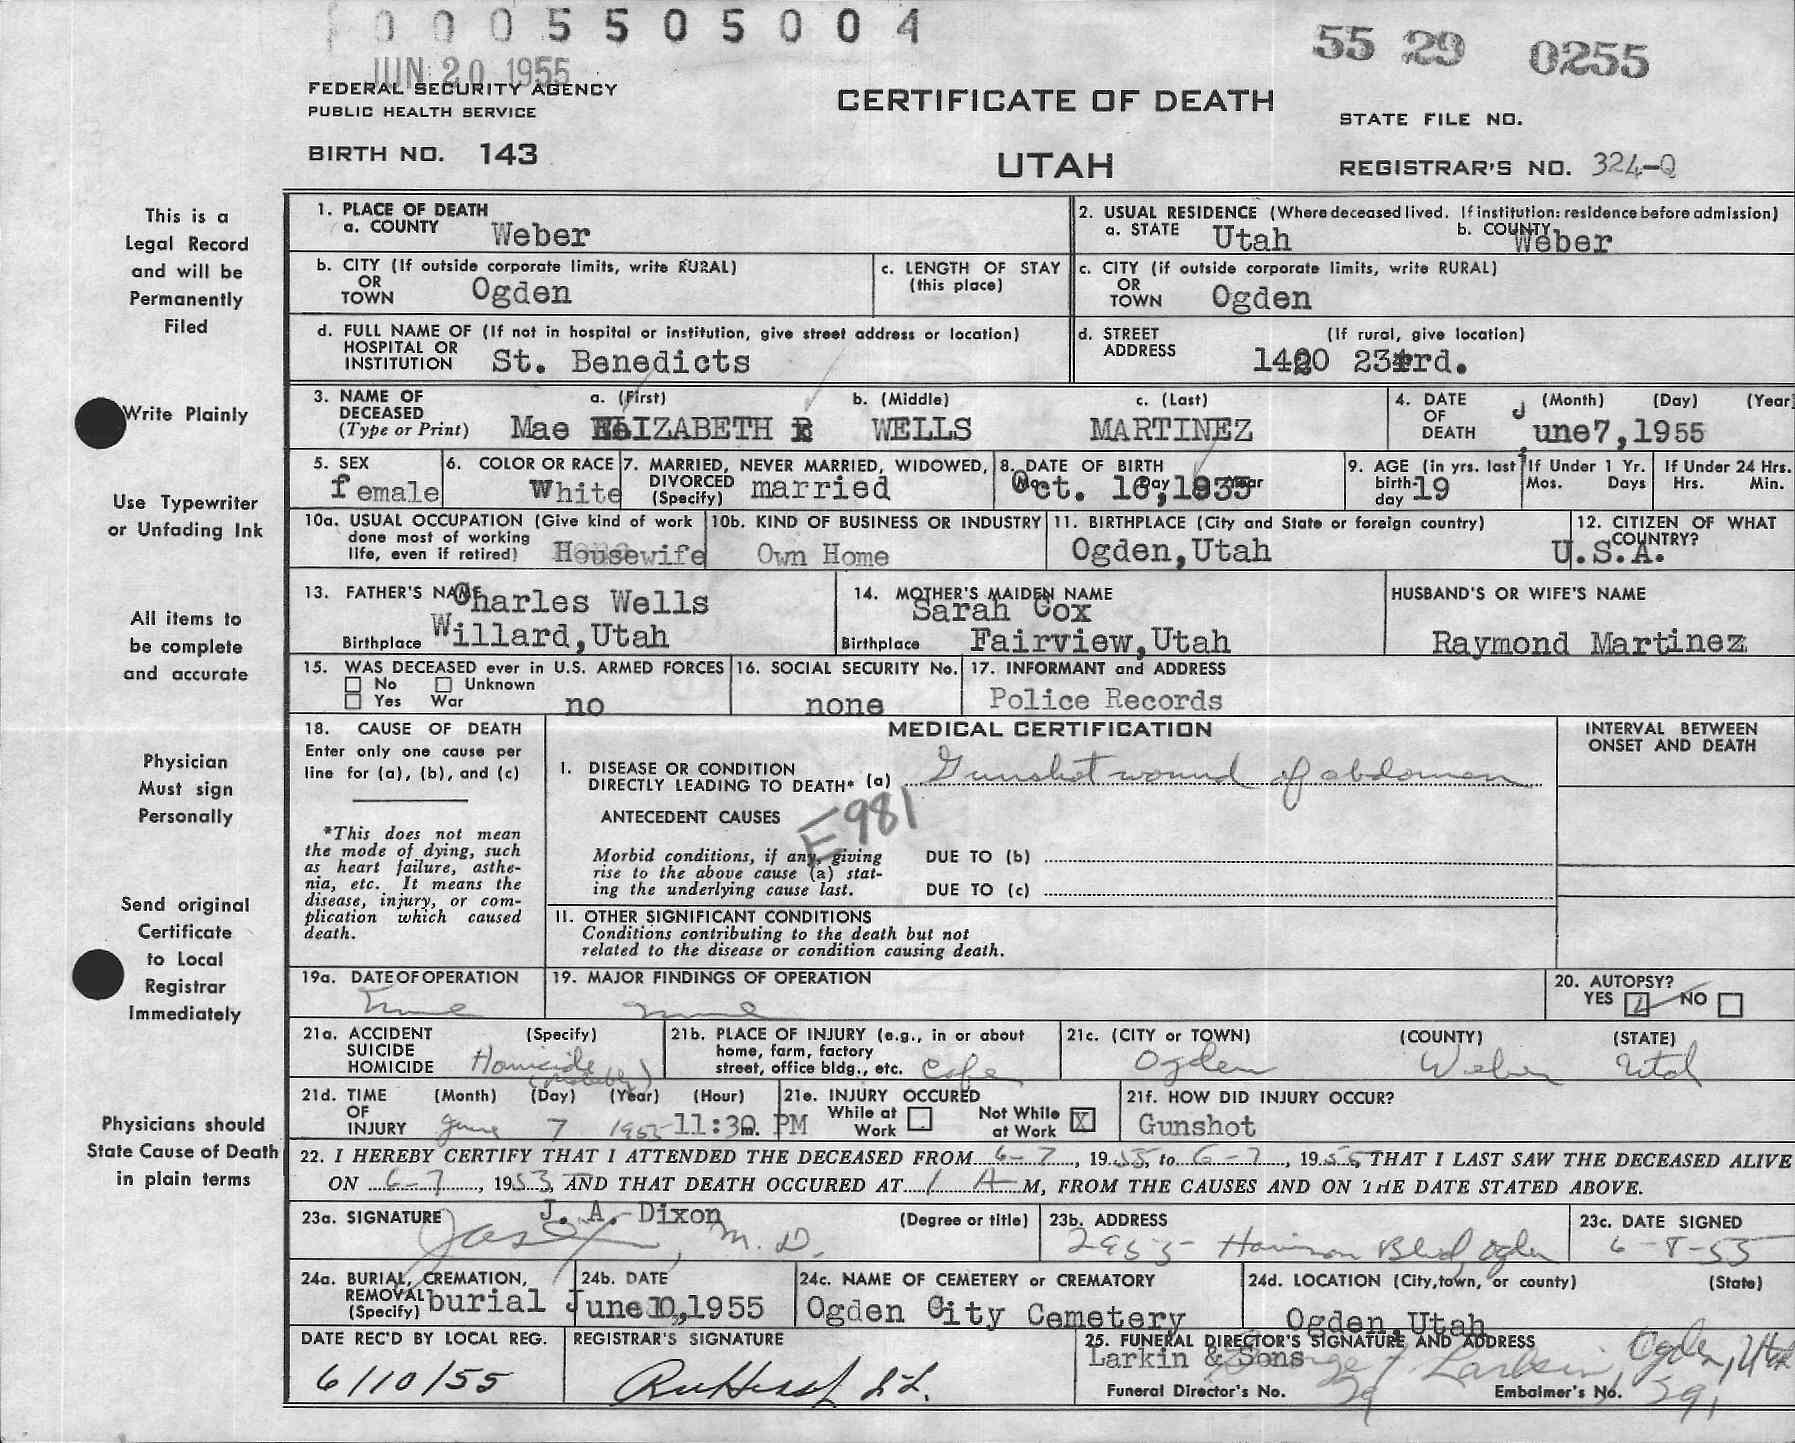 0005505004
JUN 20 1955
55 29 0255
FEDERAL SECURITY AGENCY
PUBLIC HEALTH SERVICE
CERTIFICATE OF DEATH
STATE FILE NO.
BIRTH NO. 143
UTAH
REGISTRAR'S NO. 324-Q
This is a
Legal Record
and will be
Permanently
Filed
Write Plainly
Use Typewriter
or Unfading Ink
All items to
be complete
and accurate
Physician
Must sign
Personally
Send original
Certificate
to Local
Registrar
Immediately
Physicians should
State Cause of Death
in plain terms
1. PLACE OF DEATH
a. COUNTY Weber
2. USUAL RESIDENCE (Where deceased lived. If institution: residence before admission)
a. STATE Utah b. COUNTY Weber
b. CITY (If outside corporate limits, write RURAL)
OR
TOWN Ogden
c. LENGTH OF STAY
(this place)
c. CITY (if outside corporate limits, write RURAL)
OR
TOWN Ogden
d. FULL NAME OF (If not in hospital or institution, give street address or location)
HOSPITAL OR
INSTITUTION St. Benedicts
d. STREET (If rural, give location)
ADDRESS 23rd.
3. NAME OF
DECEASED
(Type or Print)
a. (First) b. (Middle) c. (Last)
Mae ELIZABETH WELLS MARTINEZ
4. DATE
OF
DEATH
(Month) (Day) (Year)
June 7, 1955
5. SEX
female
6. COLOR OR RACE
White
7. MARRIED, NEVER MARRIED, WIDOWED,
DIVORCED
(Specify) married
8. DATE OF BIRTH
Oct. 16, 1935
9. AGE (in yrs. last
birth-
day 19
If Under 1 Yr.
Mos. Days
If Under 24 Hrs.
Hrs. Min.
10a. USUAL OCCUPATION (Give kind of work
done most of working
life, even if retired) Housewife
10b. KIND OF BUSINESS OR INDUSTRY
Own Home
11. BIRTHPLACE (City and State or foreign country)
Ogden, Utah
12. CITIZEN OF WHAT
COUNTRY?
U.S.A.
13. FATHER'S NAME Charles Wells
Birthplace Willard, Utah
14. MOTHER'S MAIDEN NAME
Sarah Cox
Birthplace Fairview, Utah
HUSBAND'S OR WIFE'S NAME
Raymond Martinez
15. WAS DECEASED ever in U.S. ARMED FORCES
No Unknown
Yes War no
16. SOCIAL SECURITY No.
none
17. INFORMANT and ADDRESS
Police Records
18. CAUSE OF DEATH
Enter only one cause per
line for (a), (b), and (c)
*This does not mean
the mode of dying, such
as heart failure, asthe-
nia, etc. It means the
disease, injury, or com-
plication which caused
death.
MEDICAL CERTIFICATION
INTERVAL BETWEEN
ONSET AND DEATH
I. DISEASE OR CONDITION
DIRECTLY LEADING TO DEATH* (a) Gunshot wound of abdomen
ANTECEDENT CAUSES
E981
Morbid conditions, if any, giving
rise to the above cause (a) stat-
ing the underlying cause last.
DUE TO (b)
DUE TO (c)
II. OTHER SIGNIFICANT CONDITIONS
Conditions contributing to the death but not
related to the disease or condition causing death.
19a. DATE OF OPERATION
none
19. MAJOR FINDINGS OF OPERATION
none
20. AUTOPSY?
YES NO
21a. ACCIDENT (Specify)
SUICIDE
HOMICIDE Homicide
(Probably)
21b. PLACE OF INJURY (e.g., in or about
home, farm, factory
street, office bldg., etc. Cafe
21c. (CITY or TOWN) (COUNTY) (STATE)
Ogden Weber Utah
21d. TIME (Month) (Day) (Year) (Hour)
OF
INJURY June 7 1955 11:30 m. PM
21e. INJURY OCCURED
While at Work
Not While at Work X
21f. HOW DID INJURY OCCUR?
Gunshot
22. I HEREBY CERTIFY THAT I ATTENDED THE DECEASED FROM 6-7, 1955, to 6-7, 1955, THAT I LAST SAW THE DECEASED ALIVE
ON 6-7, 1953, AND THAT DEATH OCCURED AT 1 A M, FROM THE CAUSES AND ON THE DATE STATED ABOVE.
23a. SIGNATURE J. A. Dixon (Degree or title)
M. D.
23b. ADDRESS
2955 Harrison Blvd, Ogden
23c. DATE SIGNED
6-8-55
24a. BURIAL, CREMATION,
REMOVAL
(Specify) burial
24b. DATE
June 10, 1955
24c. NAME OF CEMETERY or CREMATORY
Ogden City Cemetery
24d. LOCATION (City, town, or county) (State)
Ogden, Utah
DATE REC'D BY LOCAL REG.
6/10/55
REGISTRAR'S SIGNATURE
25. FUNERAL DIRECTOR'S SIGNATURE AND ADDRESS
Larkin & Sons George Larkin, Ogden, Utah
Funeral Director's No. 29
Embalmer's No. 391